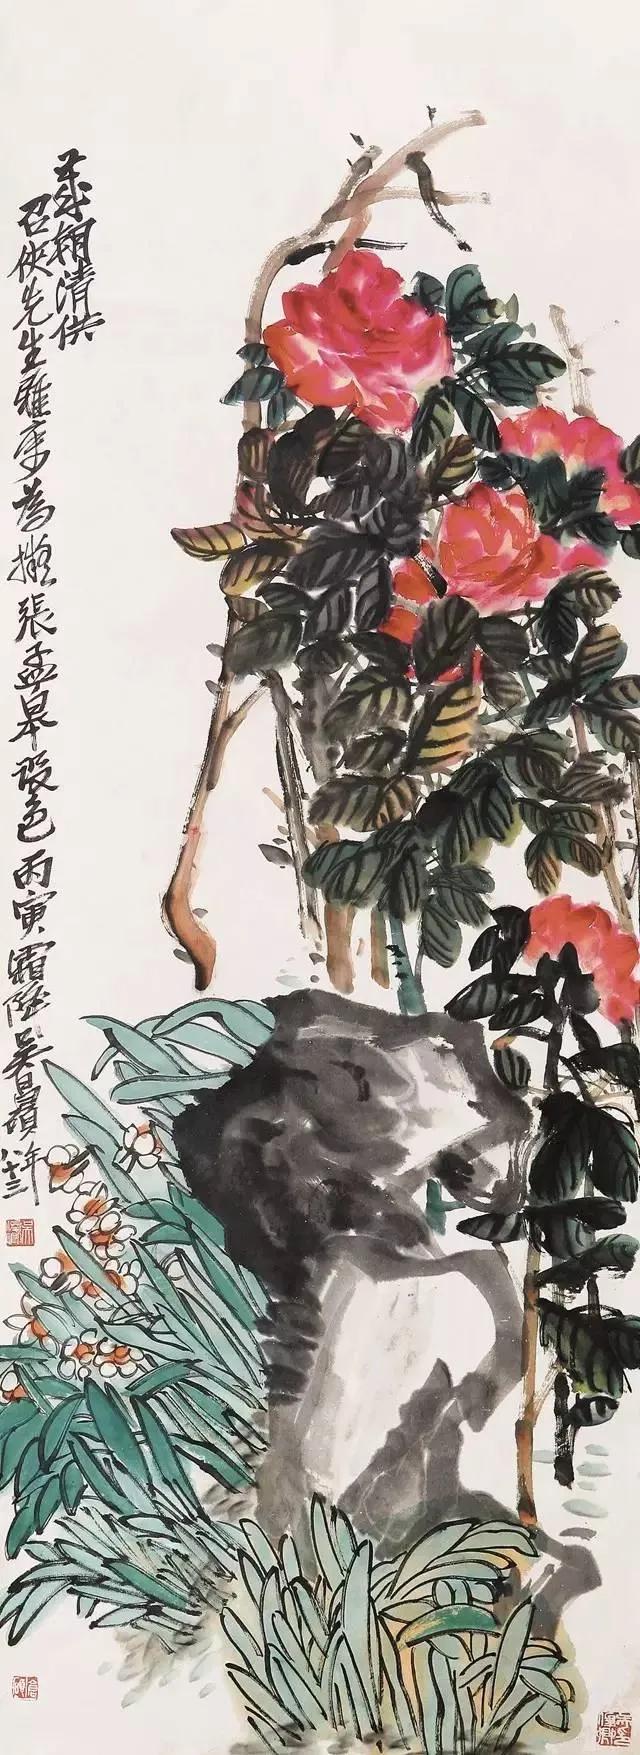 歲朝清供
召俠先生雅屬為擬張孟皋設色丙寅霜降吳昌碩
年八十三